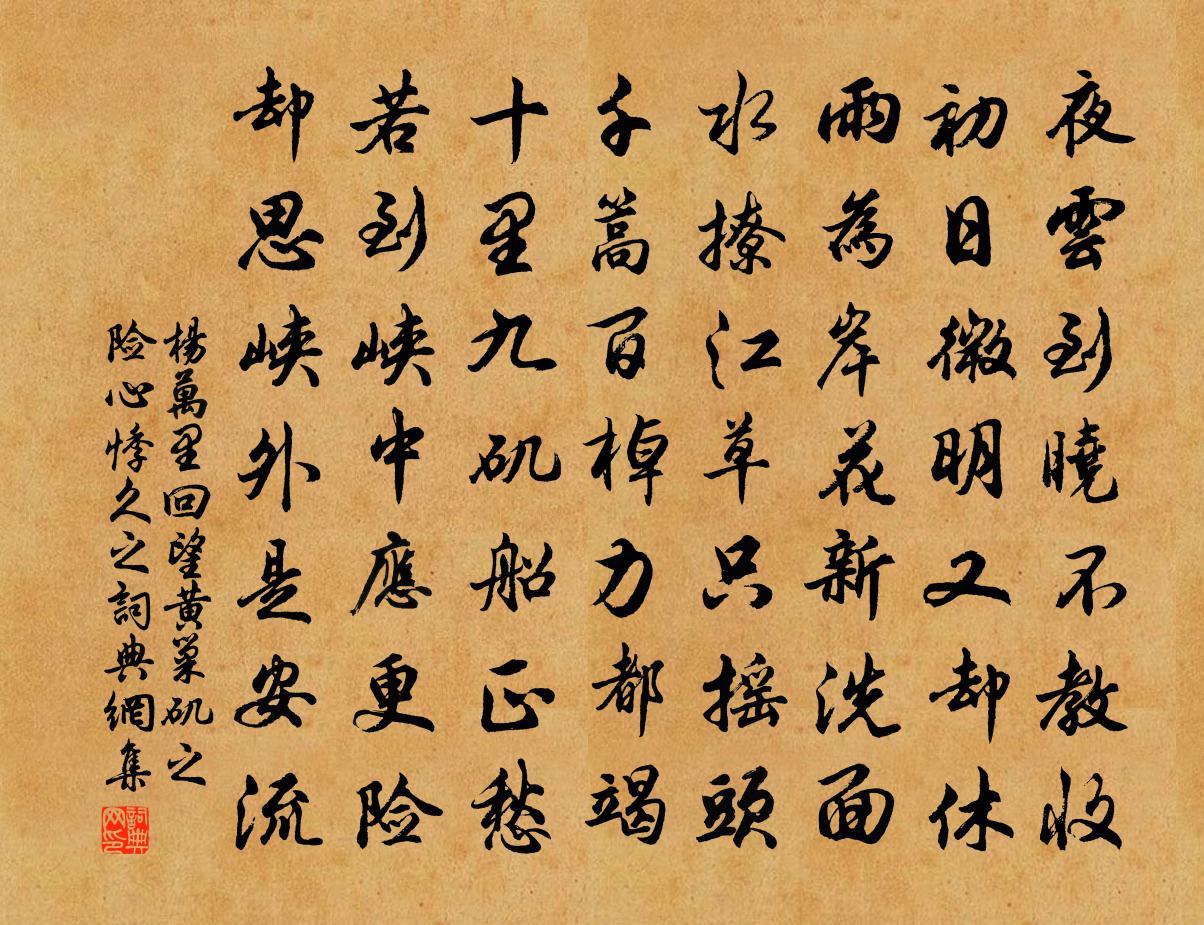 夜雲到曉不教收
初日微明又却休
雨為岸花新洗面
水撩江草只摇頭
千蒿百棹力都竭
十里九矶船正愁
若到峡中應更险
却思峡外是安流
楊萬里回望黄巢矶之
险心悸久之詞典網集
詞典网印